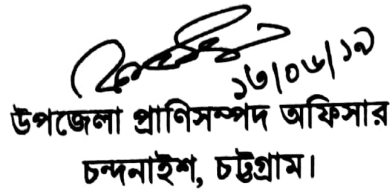 ১৩/০৬/১৯
উপজেলা প্রাণিসম্পদ অফিসার
চন্দনাইশ, চট্টগ্রাম।